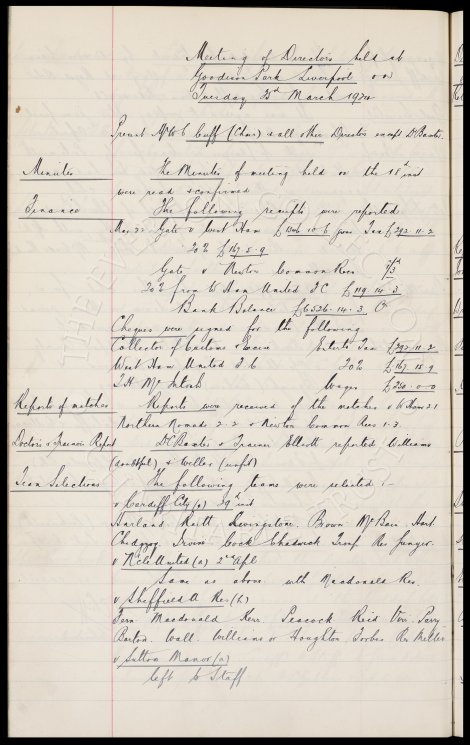 Meeting of Directors held at
Goodison Park Liverpool on
Tuesday 25th March 1924
Present Mr W C Cuff (Chair) & all other Directors except Dr Baxter.
Minutes The Minutes of meeting held on the 18th inst
were read & confirmed
Finance The following receipts were reported
Mar 22 Gate v West Ham £1306-10-6 less Tax £292-11-2
20% £167-5-9
Gate v Newton Common Res
20% from W Ham United FC £119-14-3
Bank Balance £6526-14-3 Cr
Cheques were signed for the following
Collector of Customs & Excise Enterts Tax £292-11-2
West Ham United F.C 20% £167-15-9
T.H. McIntosh Wages £250-0-0
Reports of matches Reports were received of the matches v W Ham 2-1
Northern Nomads 2-2 v Newton Common Res 1-3
Doctors & Trainers Report Dr Baxter & Trainer Elliott reported Williams
(doubtful) & Weller (unfit)
Team Selections The following teams were selected :-
v Cardiff City (a) 29th inst
Harland Raitt Livingstone Brown McBain Hart
Chedgzoy Irvine Cock Chadwick Troup Res
v N'cle United (a) 2nd Apl
Same as above with Macdonald Res
v Sheffield U Res (h)
Fern Macdonald Kerr Peacock Reid Parry
Wall Williams or Houghton Forbes Res Weller
v Sutton Manor (a)
left to Staff
THE EVERTON